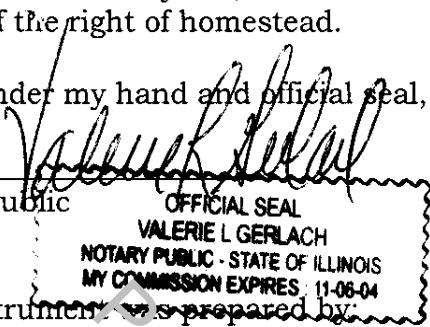 f the right of homestead.
nder my hand and official seal,
Valerie L Gerlach
ublic
OFFICIAL SEAL
VALERIE L GERLACH
NOTARY PUBLIC - STATE OF ILLINOIS
MY COMMISSION EXPIRES 11-06-04
trument was prepared by: